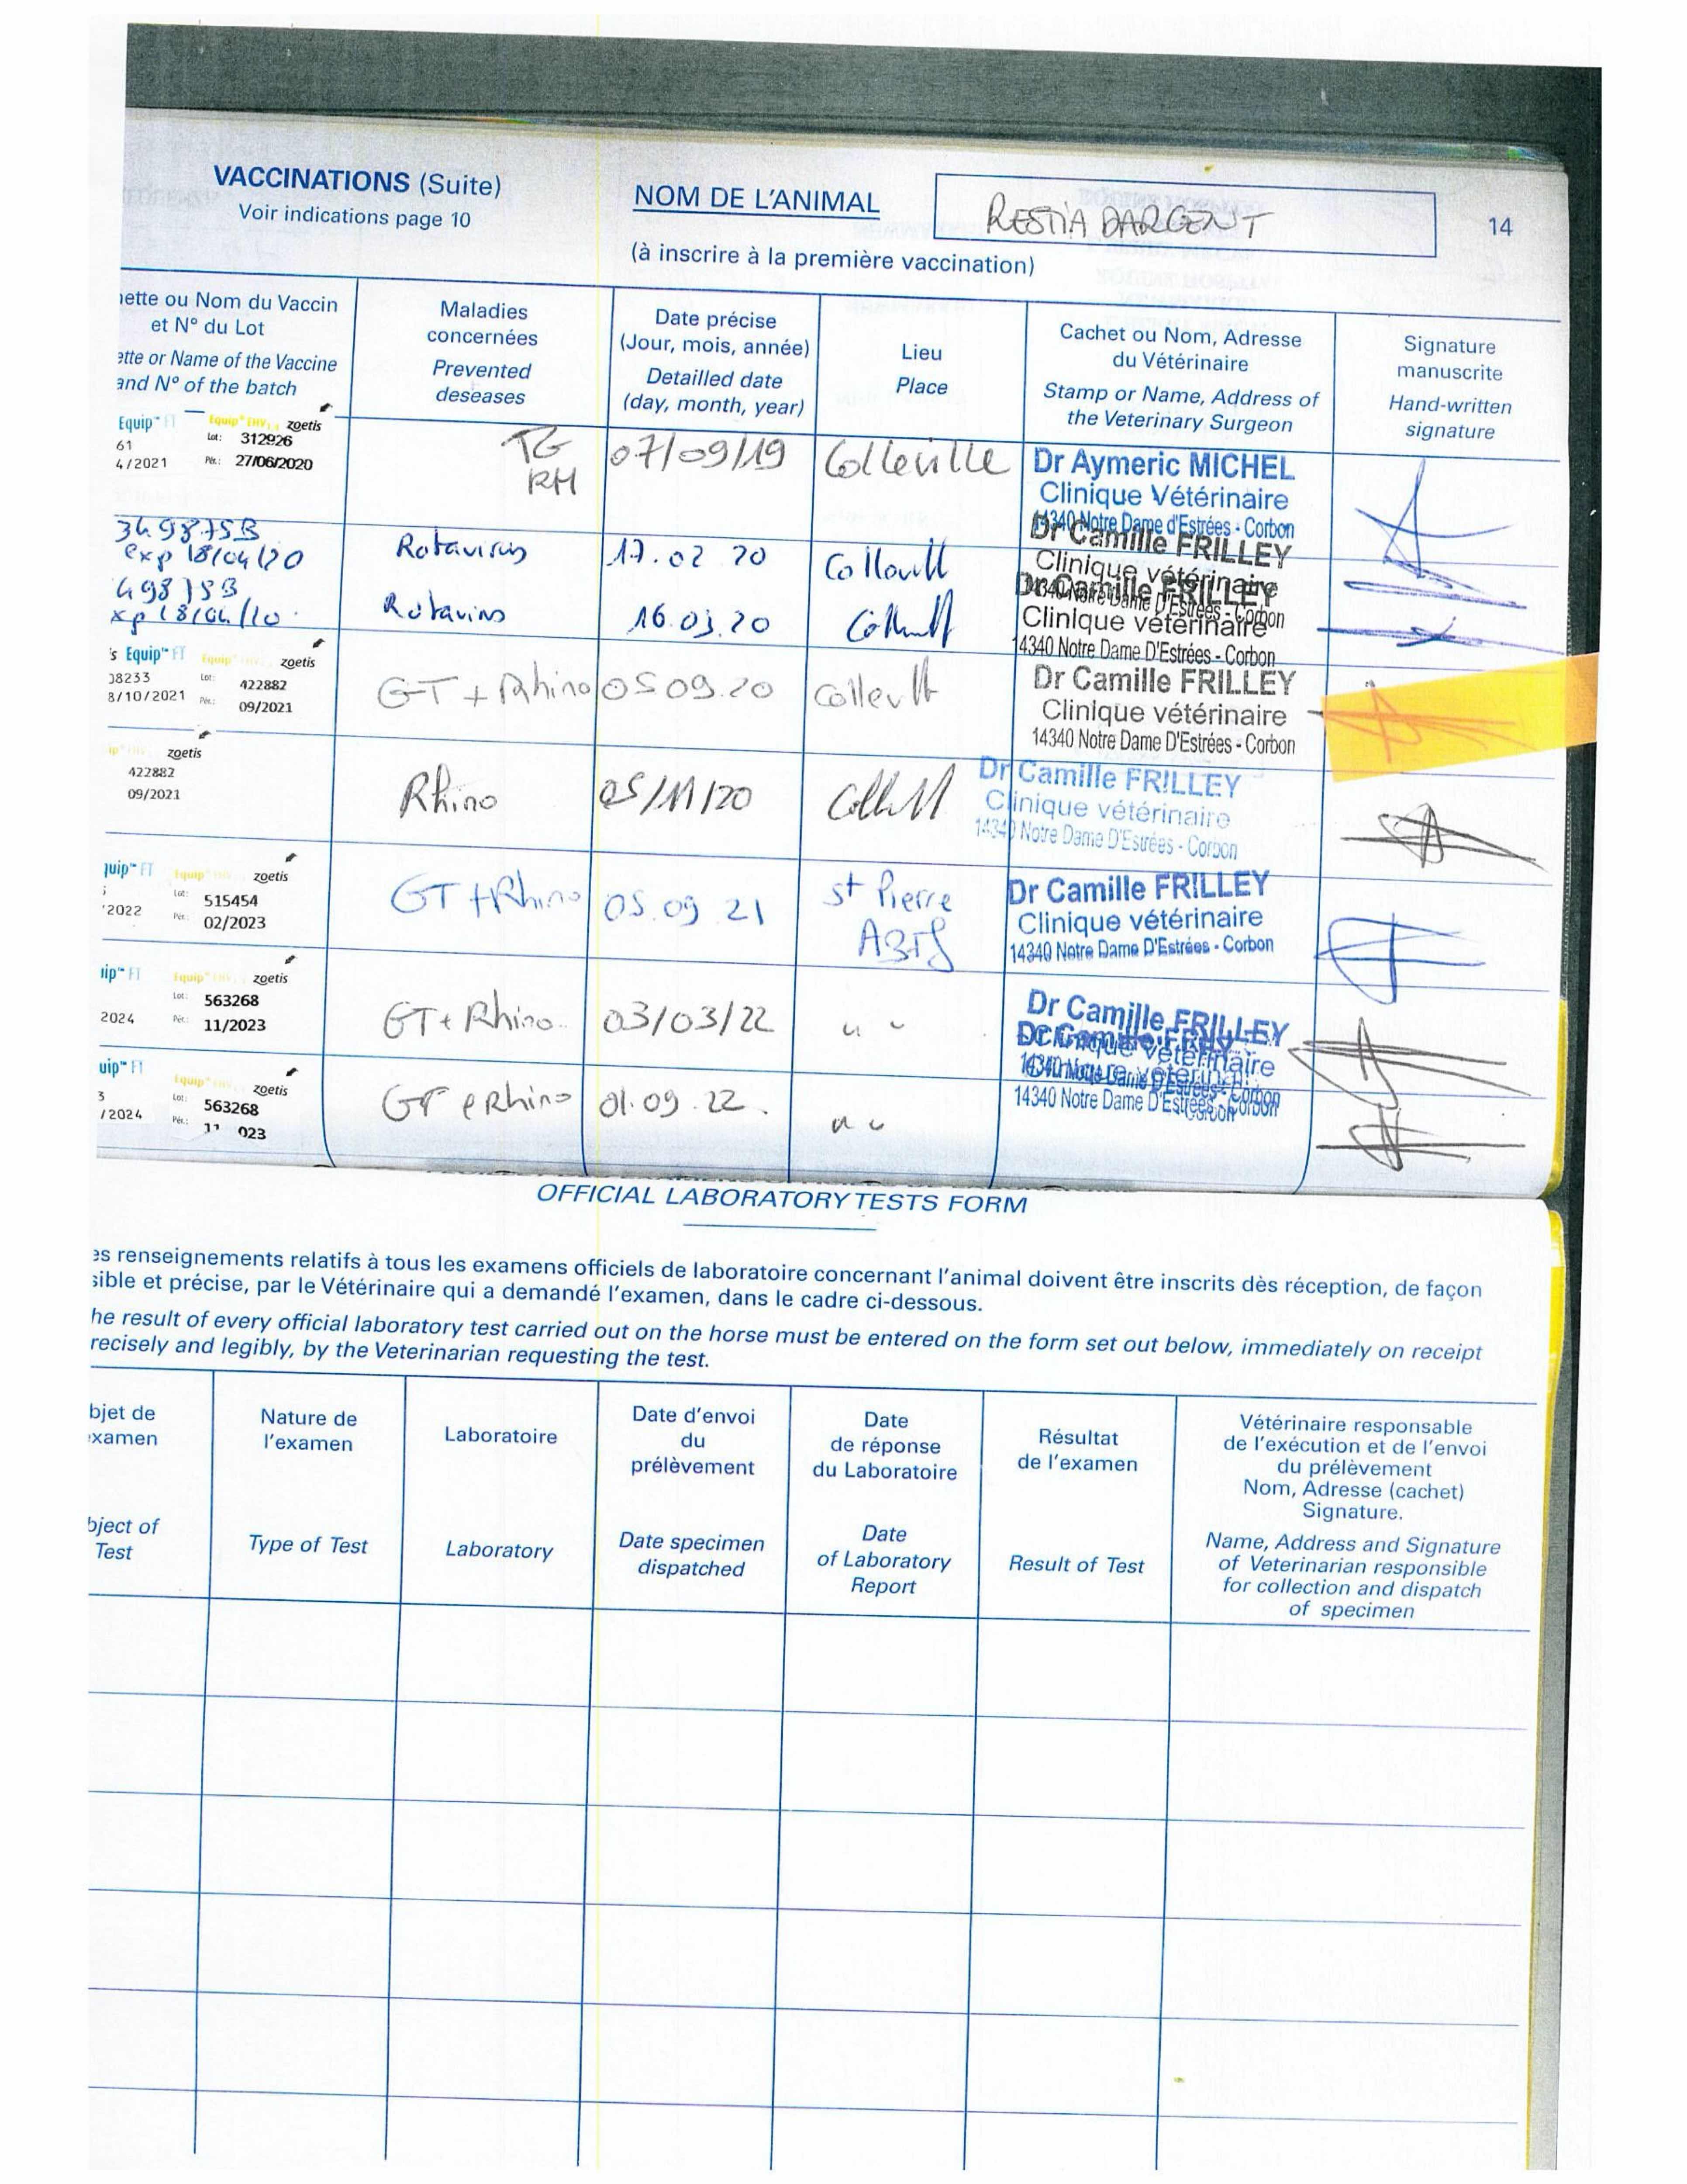 VACCINATIONS (Suite)
Voir indications page 10
NOM DE L'ANIMAL
RESTIA DARGENT
14
(à inscrire à la première vaccination)
nette ou Nom du Vaccin
et N° du Lot
ette or Name of the Vaccine
and N° of the batch
Maladies
concernées
Prevented
deseases
Date précise
(Jour, mois, année)
Detailled date
(day, month, year)
Lieu
Place
Cachet ou Nom, Adresse
du Vétérinaire
Stamp or Name, Address of
the Veterinary Surgeon
Signature
manuscrite
Hand-written
signature
Equip™ FT Equip® EHV zoetis
61 Lot: 312926
4/2021 Pér.: 27/06/2020
TG
RH
07/09/19
Colleville
Dr Aymeric MICHEL
Clinique Vétérinaire
14340 Notre Dame d'Estrées - Corbon
349875B
exp 18/04/20
Rotavirus
17.02 20
Dr Camille FRILLEY
Clinique vétérinaire
14340 Notre Dame D'Estrées - Corbon
49875B
xp 18/04/20
16.03.20
Dr Camille FRILLEY
Clinique vétérinaire
14340 Notre Dame D'Estrées - Corbon
s Equip™ FT Equip zoetis
08233 Lot: 422882
8/10/2021 Pér.: 09/2021
GT + Rhino
05 09.20
Dr Camille FRILLEY
Clinique vétérinaire
14340 Notre Dame D'Estrées - Corbon
zoetis
422882
09/2021
Rhino
05/11/20
Dr Camille FRILLEY
Clinique vétérinaire
14340 Notre Dame D'Estrées - Corbon
quip™ FT Equip zoetis
Lot: 515454
2022 Pér.: 02/2023
GT + Rhino
05.09.21
St Pierre
Dr Camille FRILLEY
Clinique vétérinaire
14340 Notre Dame D'Estrées - Corbon
uip™ FT Equip zoetis
Lot: 563268
2024 Pér.: 11/2023
GT + Rhino
03/03/22
Dr Camille FRILLEY
Clinique vétérinaire
uip™ FT Equip zoetis
3 Lot: 563268
/2024 Pér.: 11 023
GT e Rhino
01.09.22.
14340 Notre Dame D'Estrées - Corbon
OFFICIAL LABORATORY TESTS FORM
es renseignements relatifs à tous les examens officiels de laboratoire concernant l'animal doivent être inscrits dès réception, de façon
sible et précise, par le Vétérinaire qui a demandé l'examen, dans le cadre ci-dessous.
he result of every official laboratory test carried out on the horse must be entered on the form set out below, immediately on receipt
recisely and legibly, by the Veterinarian requesting the test.
bjet de
examen
bject of
Test
Nature de
l'examen
Type of Test
Laboratoire
Laboratory
Date d'envoi
du
prélèvement
Date specimen
dispatched
Date
de réponse
du Laboratoire
Date
of Laboratory
Report
Résultat
de l'examen
Result of Test
Vétérinaire responsable
de l'exécution et de l'envoi
du prélèvement
Nom, Adresse (cachet)
Signature.
Name, Address and Signature
of Veterinarian responsible
for collection and dispatch
of specimen